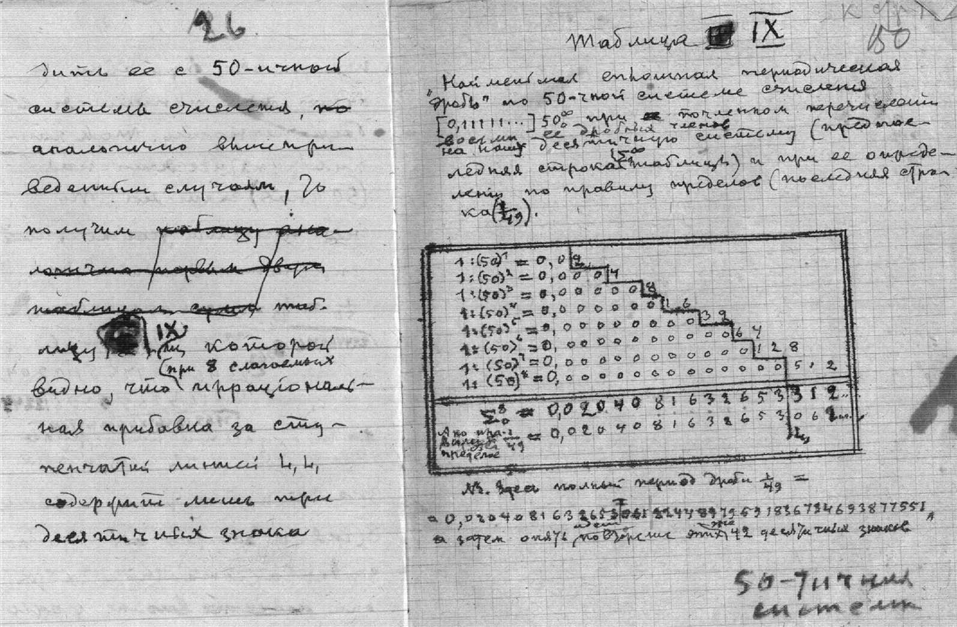 26
дить ее с 50-ичной
системы счисления, по
аналогично выше при-
веденным случаям, то
получим таблицу ана-
логично первым двум
таблицам
лицу IX, из которой
(при 8 слагаемых
видно, что иррациональ-
ная прибавка за сту-
пенчатой линией
содержит лишь три
десятичных знака
50
Таблица IX
"Наименьшая сплошная периодическая
дробь" по 50-чной системе счисления
[0,11111...] 50 при почленном перечислении
восьми ее дробных членов
на нашу десятичную систему (предпос-
ледняя строка таблицы) и при ее опреде-
лении по правилу пределов (последняя стро-
ка (1/49).
1:(50)¹ = 0,02
1:(50)² = 0,0004
1:(50)³ = 0,000008
1:(50)⁴ = 0,00000016
1:(50)⁵ = 0,
1:(50)⁶ = 0,
1:(50)⁷ = 0,
1:(50)⁸ = 0,
= 0,0204081632653312..
А по пра-
вилу
пределов 1/49 = 0,0204081632653061...
NB. Здесь полный период дроби 1/49 =
= 0,020408163265306122448979591836734693877551,
а затем опять идет повторение этих же 42 десятичных знаков
50-тичная
система